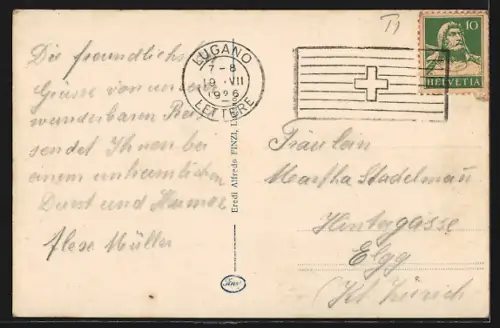 Die freundlichst
Grüsse von unserer
wunderbaren Reise
sendet Ihnen bei
einem unheimlichen
Durst und Humor
Müller
LUGANO
7-8
19.VII
1926
LETTERE
10
HELVETIA
Eredi Alfredo FINZI,
Fräulein
Martha Stadelmañ
Hintergasse
Elgg
(Kt. Zürich)